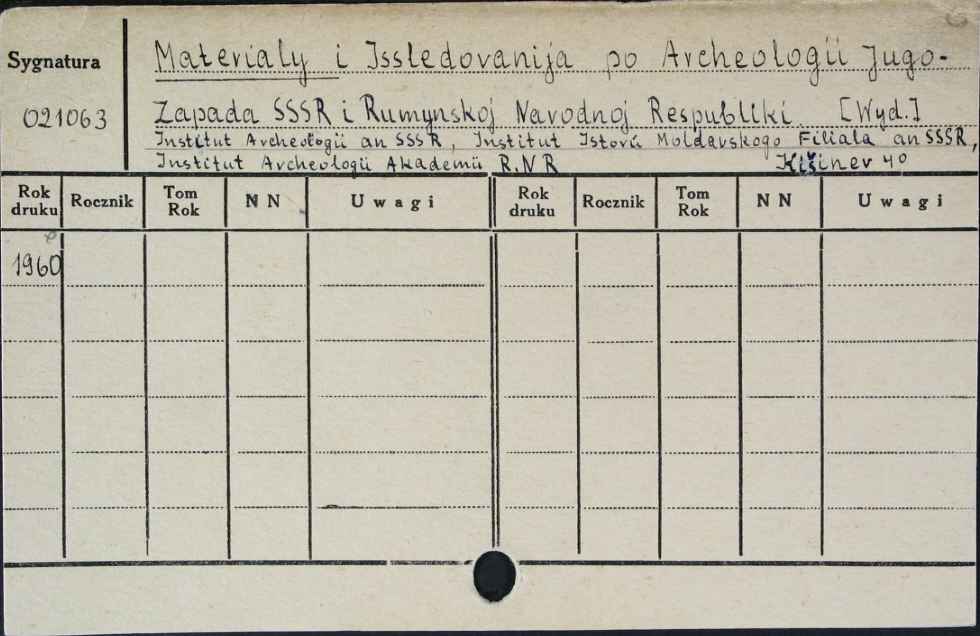 Sygnatura
021063
Materialy i Issledovanija po Archeologii Jugo-
Zapada SSSR i Rumynskoj Narodnoj Respubliki. [Wyd.]
Institut Archeologii an SSSR, Institut Istorii Moldavskogo Filiala an SSSR,
Institut Archeologii Akademii R.N R Kišinev 4°
Rok druku Rocznik Tom Rok N N Uwagi Rok druku Rocznik Tom Rok N N Uwagi
1960